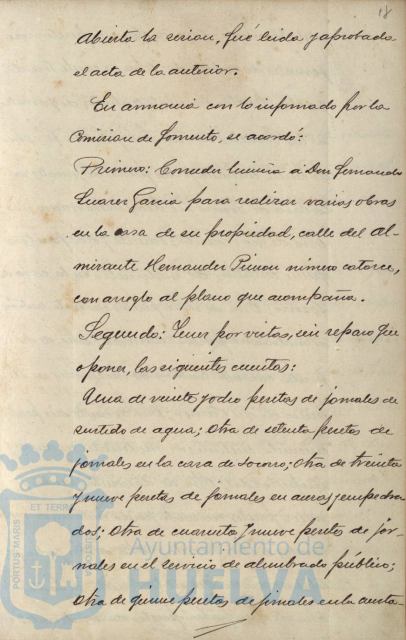 18
Abierta la sesion, fué leida y aprobada
el acta de la anterior.
En armonía con lo informado por la
Comision de Fomento, se acordó:
Primero: Conceder licencia á Don Fernando
Suarez Garcia para realizar varias obras
en la casa de su propiedad, calle del Al-
mirante Hernandez Pinzon número catorce,
con arreglo al plano que acompaña.
Segundo: Tener por vistas, sin reparo que
oponer, las siguientes cuentas:
Una de veinte y ocho pesetas de jornales de
surtido de agua; otra de setenta pesetas de
jornales en la casa de socorro; otra de treinta
y nueve pesetas de jornales en aceras y empedra-
dos; otra de cuarenta y nueve pesetas de jor-
nales en el servicio de alumbrado público;
otra de quince pesetas de jornales en la
PORTUS MARIS
ET TERRÆ
CUSTODIA
Ayuntamiento de
HUELVA